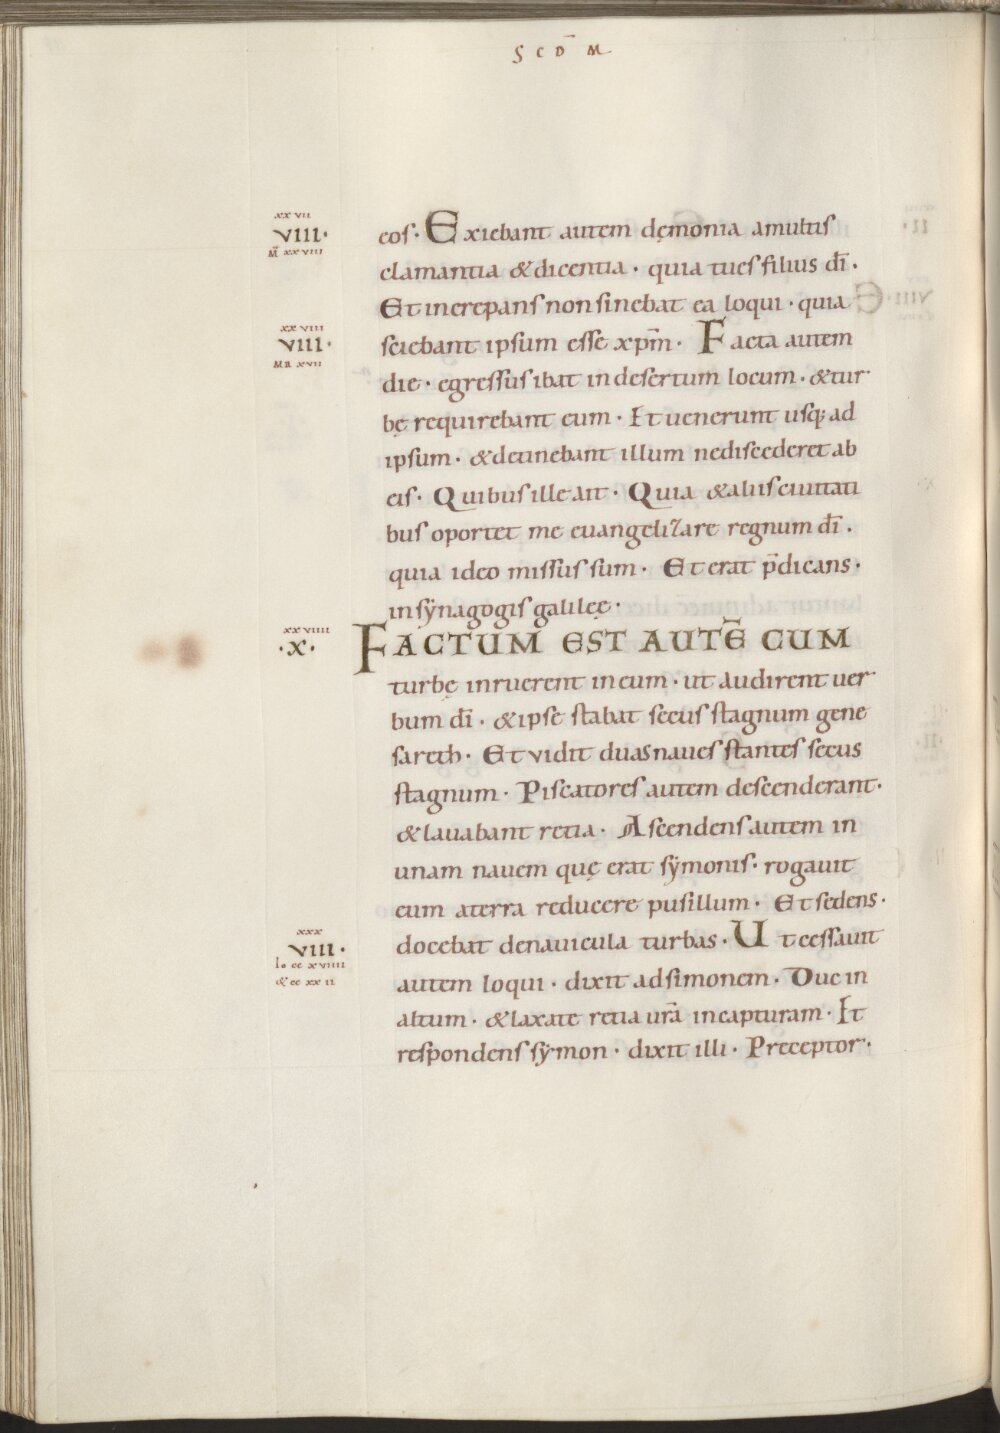 SCD̄ M
xxvii
VIII·
M̄ xxviii
eos· Exiebant autem dęmonia amultis
clamantia &dicentia· quia tues filius dī·
Et increpans non sinebat ea loqui· quia
xxviii
VIII·
MR xvii
sciebant ipsum esse xp̄m· Facta autem
die· egressus ibat in desertum locum· &tur
bę requirebant eum· Et uenerunt usq; ad
ipsum· &detinebant illum nediscederet ab
eis· Quibus ille ait· Quia &aliis ciuitati
bus oportet me euangelizare regnum dī·
quia ideo missus sum· Et erat p̄dicans·
in synagogis galileę·
xxviiii
·X·
FACTUM EST AUTĒ CUM
turbę inruerent in eum· ut audirent uer
bum dī· &ipse stabat secus stagnum gene
sareth· Et vidit duas naues stantes secus
stagnum· Piscatores autem descenderant·
&lauabant retia· Ascendens autem in
unam nauem quę erat symonis· rogauit
eum aterra reducere pusillum· Et sedens·
xxx
VIII·
Io cc xviiii
&cc xx ii
docebat denauicula turbas· Ut cessauit
autem loqui· dixit ad simonem· Duc in
altum· &laxate retia urā in capturam· Et
respondens symon· dixit illi· Preceptor·